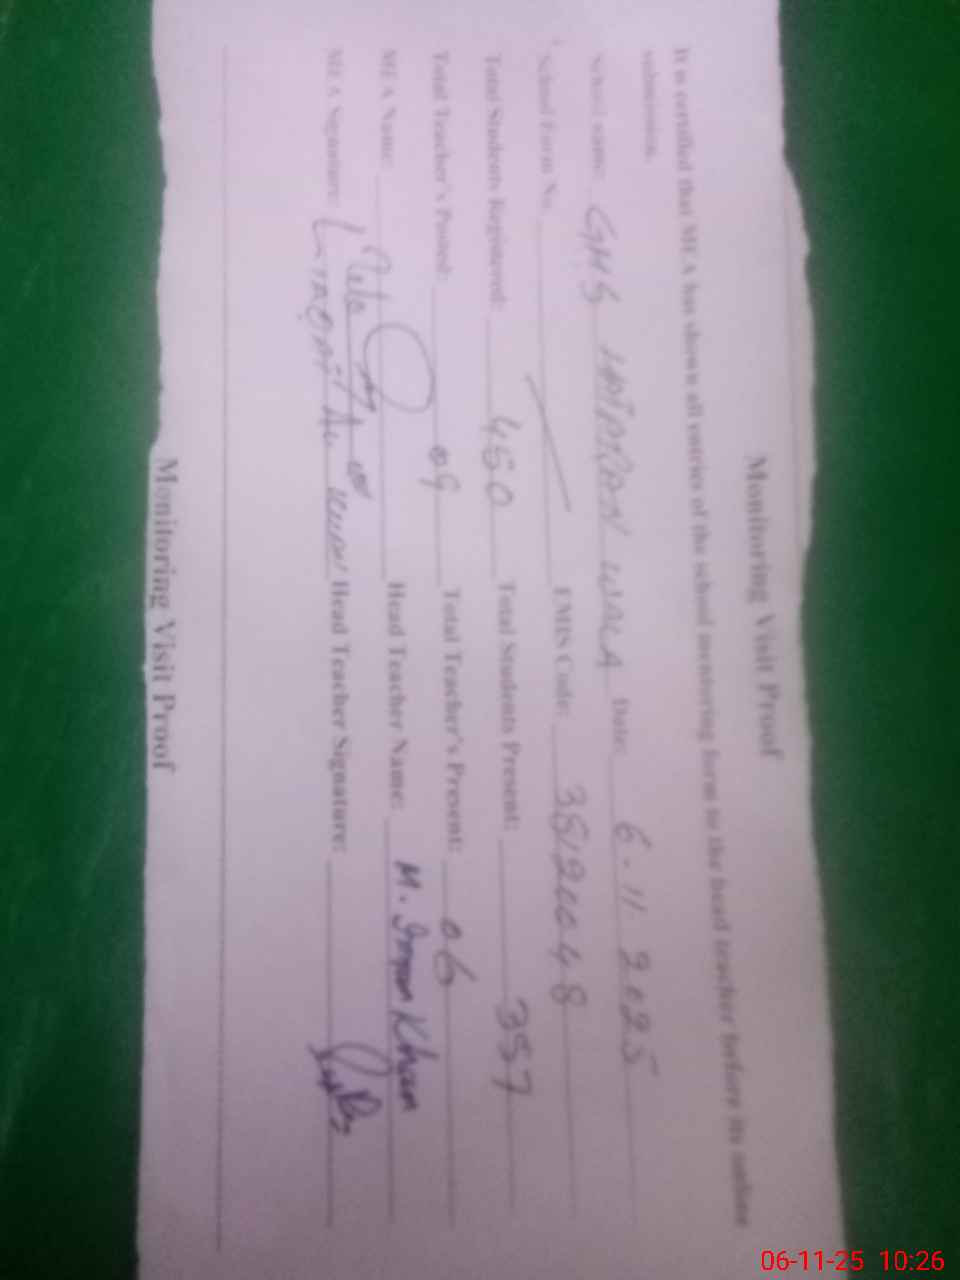 Monitoring Visit Proof
It is certified that MEA has shown all entries of the school mentoring form to the head teacher before its online
submission.
School name: GHS HATRAN WALA Date: 6.11.2025
School Form No. EMIS Code: 38120048
Total Students Registered: 450 Total Students Present: 357
Total Teacher's Posted: 09 Total Teacher's Present: 06
MEA Name: Head Teacher Name: M. Imran Khan
MEA Signature: Head Teacher Signature:
Monitoring Visit Proof
06-11-25 10:26